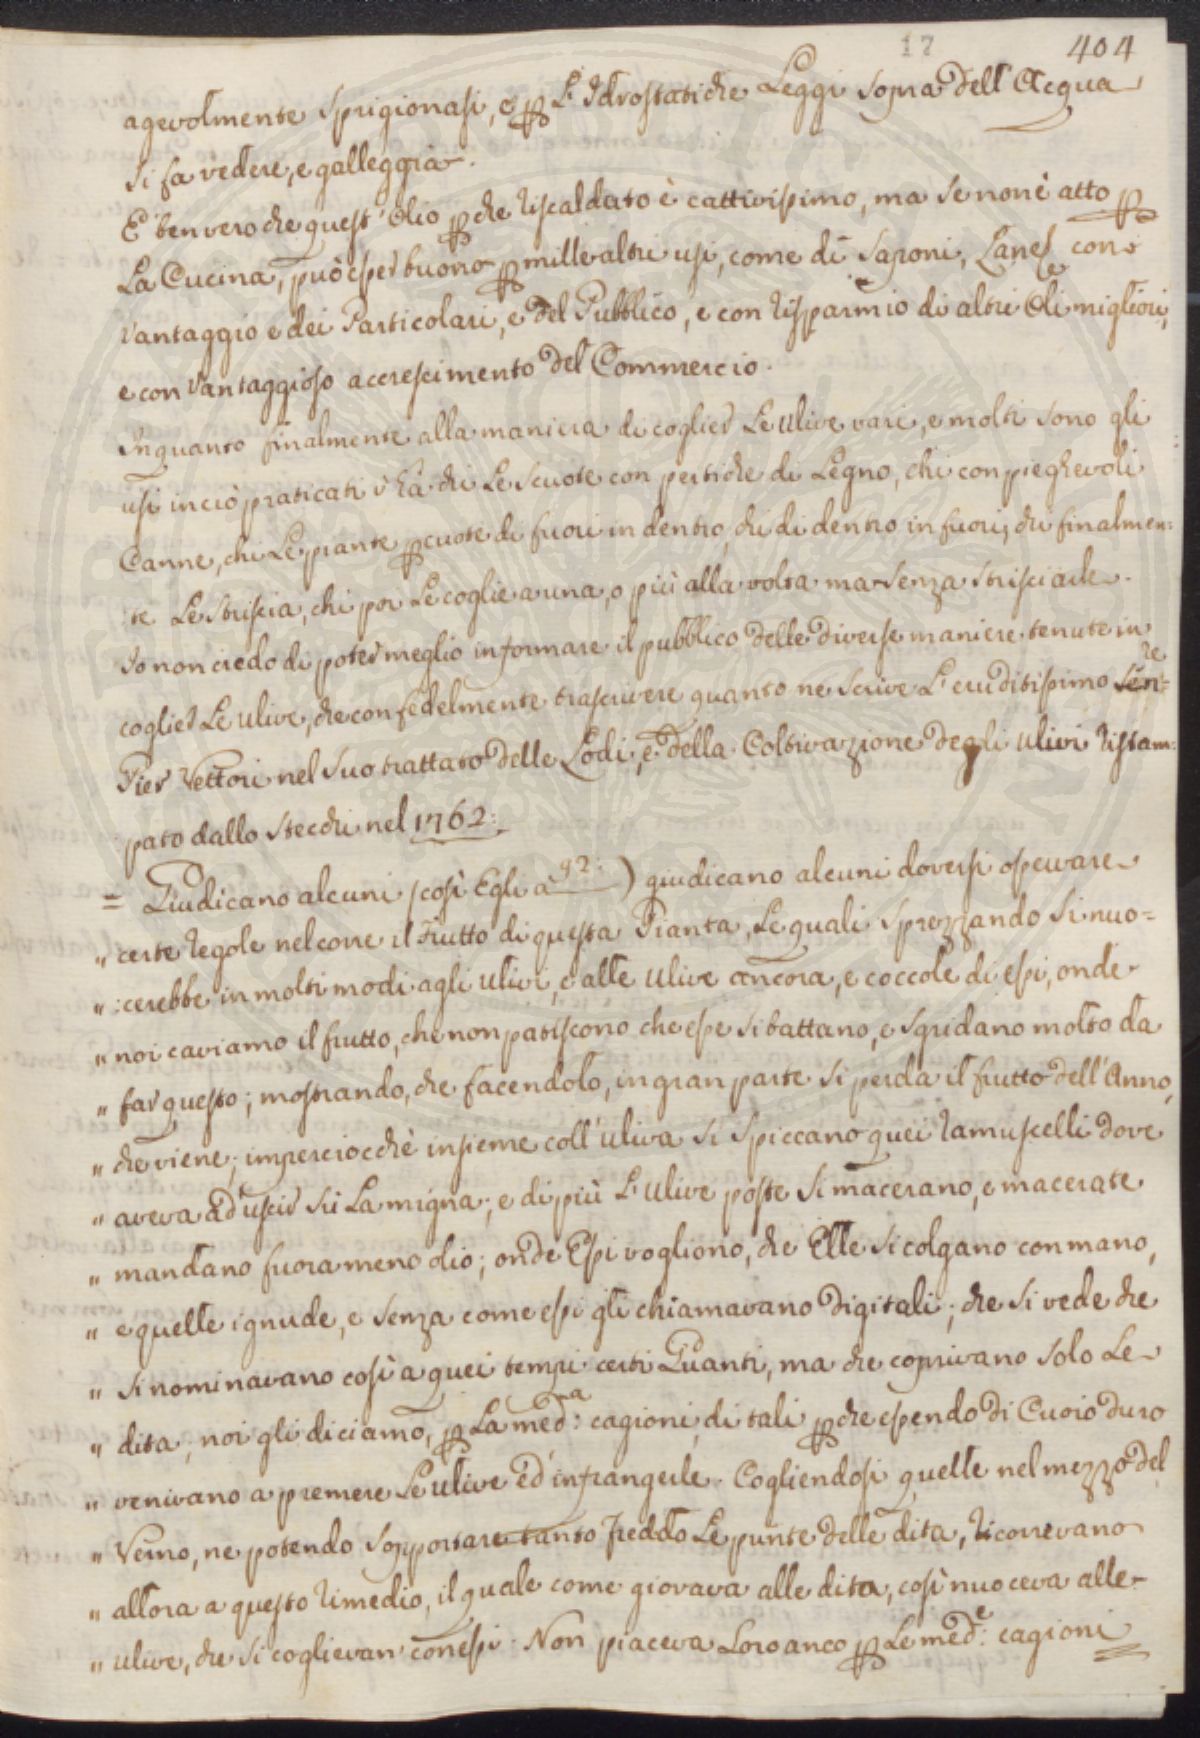 17 404
agevolmente sprigionasi, e p L'Idrostatiche Leggi sopra dell'Acqua
si fa vedere, e galleggia.
E' ben vero che quest'Olio pche riscaldato è cattivissimo, ma se non è atto p
La Cucina, può esser buono p mille altri usi, come di Saponi, Lane, con
vantaggio e dei Particolari, e del Pubblico, e con risparmio di altri Oli migliori,
e con vantaggioso accrescimento del Commercio.
In quanto finalmente alla maniera di coglier Le Ulive vari, e molti sono gli
usi in ciò praticati v'hà chi Le scuote con pertiche di Legno, chi con pieghevoli
Canne, chi Le piante pcuote di fuori in dentro, chi di dentro in fuori, chi finalmen=
te Le striscia, chi poi Le coglie a una, o più alla volta ma senza strisciarle.
Io non credo di poter meglio informare il pubblico delle diverse maniere tenute in
coglier Le ulive, che con fedelmente trascrivere quanto ne scrive L'eruditissimo Sen:re
Pier Vettori nel suo trattato delle Lodi, e della Coltivazione degli ulivi ristam:
pato dallo Stecchi nel 1762:
= Giudicano alcuni (così Egli a 92.) giudicano alcuni doversi osservare
" certe regole nel corre il Frutto di questa Pianta, Le quali sprezzando si nuo=
" :cerebbe in molti modi agli ulivi, e alle ulive ancora, e coccole di essi, onde
" noi caviamo il frutto, che non patiscono che esse si battano, e sgridano molto da
" far questo; mostrando, che facendolo, in gran parte si perda il frutto dell'Anno,
" che viene; imperciocchè insieme coll'uliva si spiccano quei ramuscelli dove
" aveva ad uscir sù La migna; e di più L'ulive peste si macerano, e macerate
" mandano fuora meno olio; onde Essi vogliono, che Elle si colgano con mano,
" e quelle ignude, e senza come essi gli chiamavano Digitali; che si vede che
" si nominavano così a quei tempi certi Guanti, ma che coprivano solo Le
" dita, noi gli diciamo, p La med:a cagioni, di tali pche essendo di Cuoio duro
" venivano a premere Le ulive ed infrangerle. Cogliendosi quelle nel mezzo del
" Verno, ne potendo sopportare tanto freddo Le punte delle dita, ricorrevano
" allora a questo rimedio, il quale come giovava alle dita, così nuoceva alle
" ulive, che si coglievan con essi. Non piaceva Loro anco p Le med:e cagioni